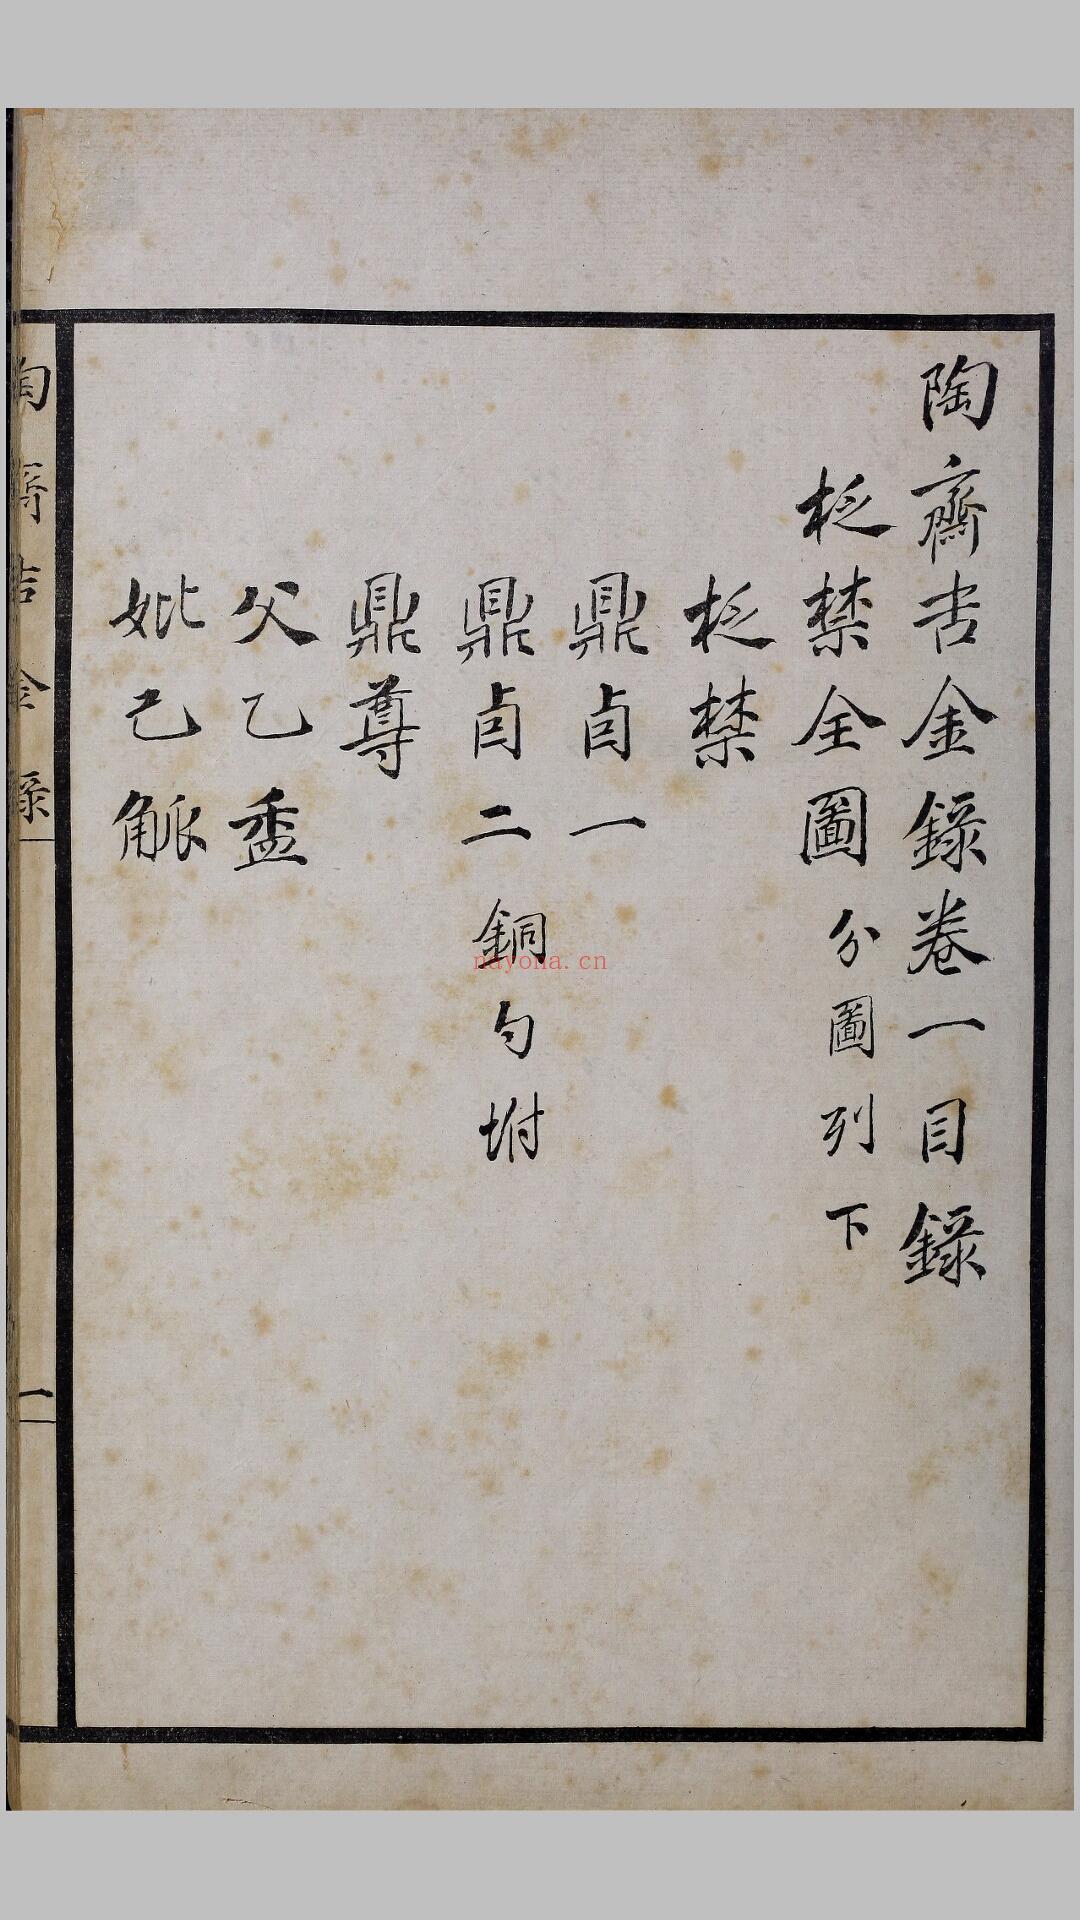 陶齋吉金錄卷一目錄
柉禁全圖 分圖列下
柉禁
鼎卣一
鼎卣二 銅勺坿
鼎尊
父乙盉
妣己觚
陶齋吉金錄
一
nayona.cn